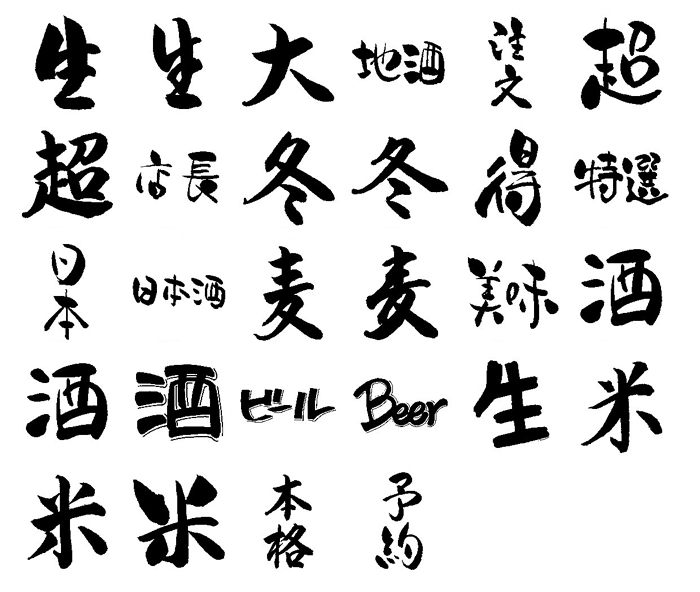 生 生 大 地酒 注文 超
超 店長 冬 冬 得 特選
日本 日本酒 麦 麦 美味 酒
酒 酒 ビール Beer 生 米
米 米 本格 予約